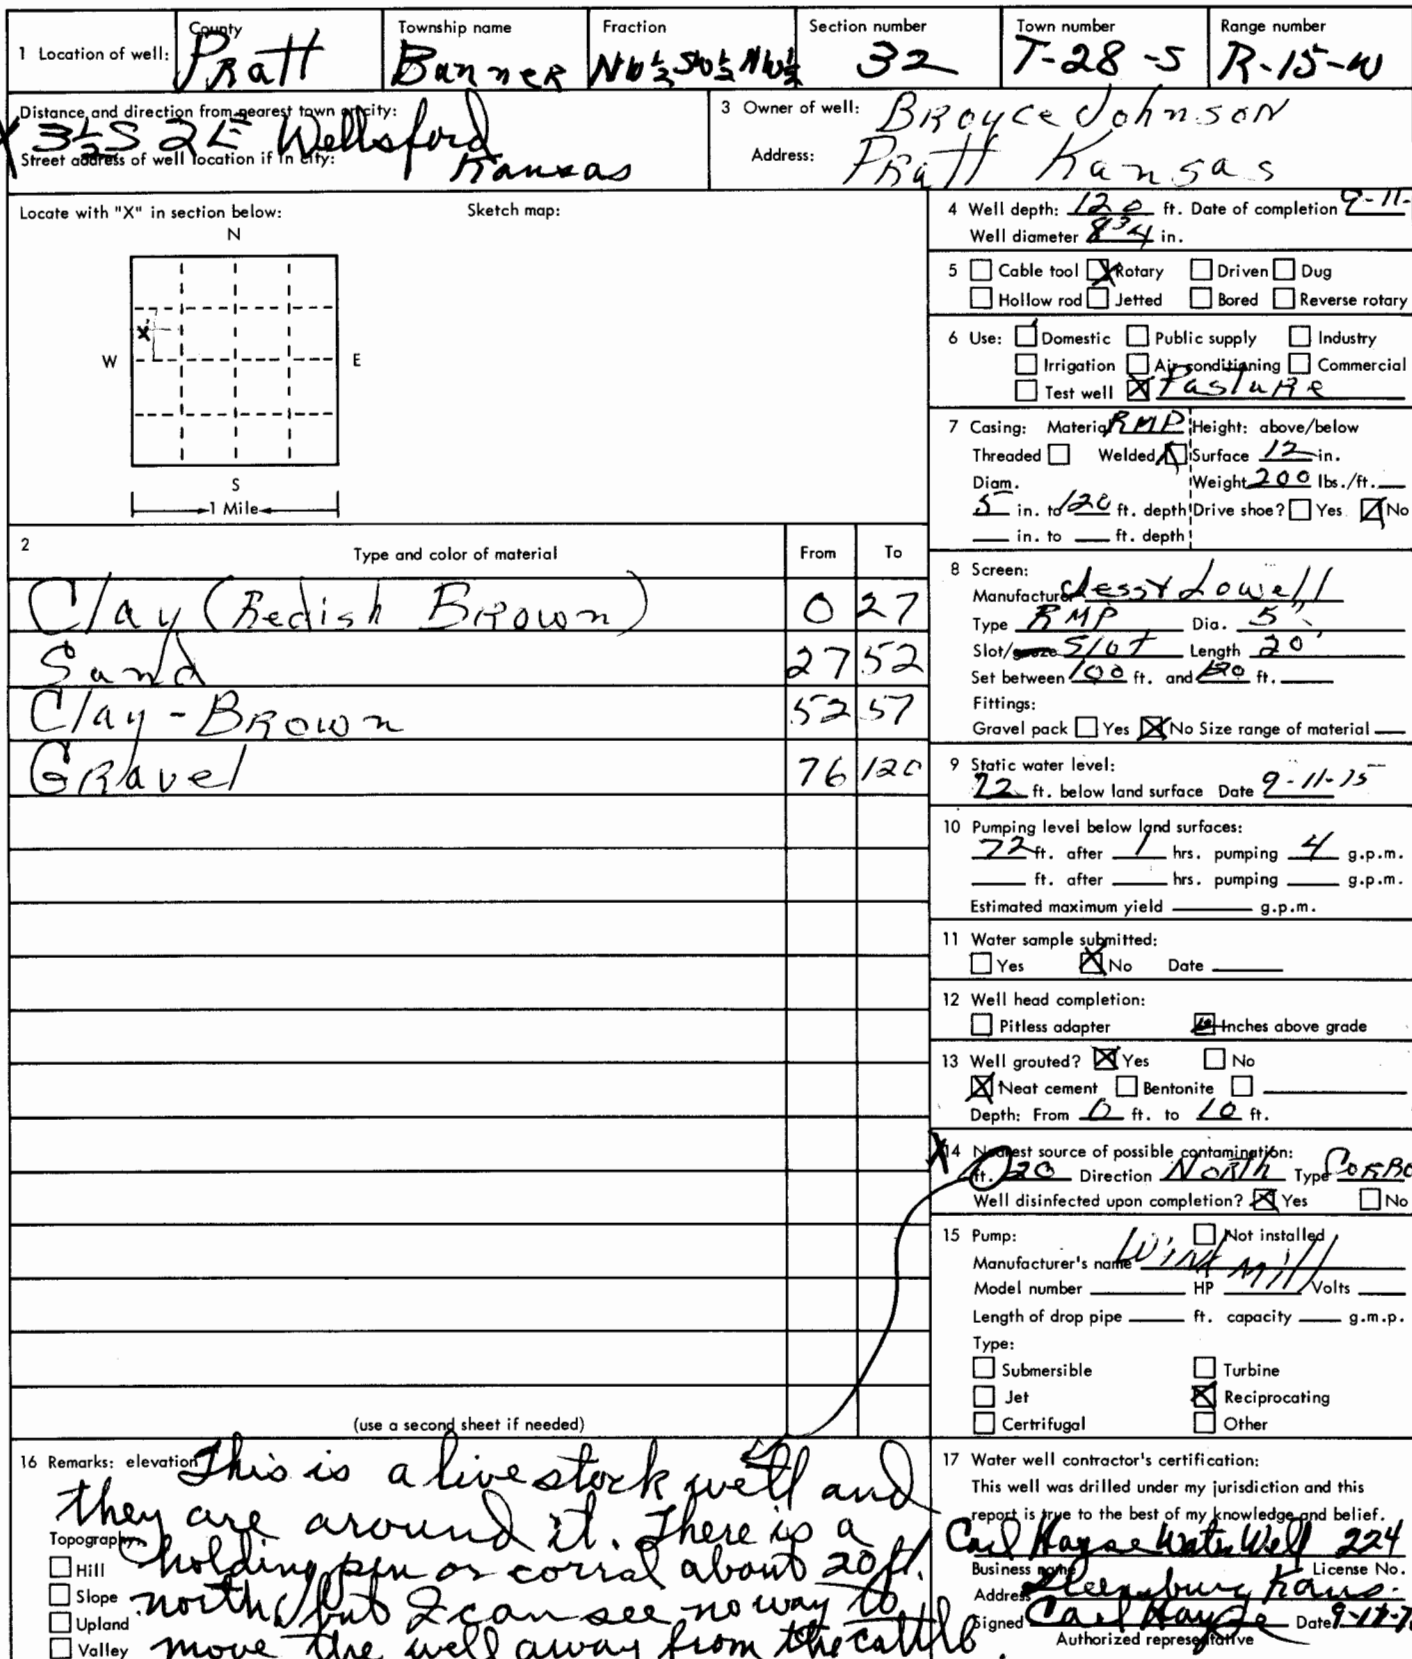 1 Location of well: County Pratt Township name Banner Fraction NW½ SW½ NW½ Section number 32 Town number T-28-S Range number R-15-W
Distance and direction from nearest town or city: 3 Owner of well: Broyce Johnson
X 3½S 2E Wellsford Kansas
Street address of well location if in city: Address: Pratt Kansas
Locate with "X" in section below: Sketch map:
N
W X E
S
1 Mile
2 Type and color of material From To
Clay (Redish Brown) 0 27
Sand 27 52
Clay - Brown 52 57
Gravel 76 120
(use a second sheet if needed)
4 Well depth: 120 ft. Date of completion 9-11-
Well diameter 8 3/4 in.
5 Cable tool X Rotary Driven Dug
Hollow rod Jetted Bored Reverse rotary
6 Use: Domestic Public supply Industry
Irrigation Air conditioning Commercial
Test well X Pasture
7 Casing: Material RMP Height: above/below
Threaded Welded X Surface 12 in.
Diam. Weight 200 lbs./ft.
5 in. to 120 ft. depth Drive shoe? Yes X No
in. to ft. depth
8 Screen:
Manufacturer Lowell
Type RMP Dia. 5"
Slot/ Slot Length 20'
Set between 100 ft. and 120 ft.
Fittings:
Gravel pack Yes X No Size range of material
9 Static water level:
72 ft. below land surface Date 9-11-75
10 Pumping level below land surfaces:
72 ft. after 1 hrs. pumping 4 g.p.m.
ft. after hrs. pumping g.p.m.
Estimated maximum yield g.p.m.
11 Water sample submitted:
Yes X No Date
12 Well head completion:
Pitless adapter Inches above grade
13 Well grouted? X Yes No
X Neat cement Bentonite
Depth: From 0 ft. to 10 ft.
X 14 Nearest source of possible contamination:
ft. 20 Direction North Type
Well disinfected upon completion? X Yes No
15 Pump: Not installed
Manufacturer's name Wind Mill
Model number HP Volts
Length of drop pipe ft. capacity g.m.p.
Type:
Submersible Turbine
Jet X Reciprocating
Certrifugal Other
16 Remarks: elevation This is a livestock well and
they are around it. There is a
Topography:
Hill holding pen or corral about 20 ft.
Slope north, but I can see no way to
Upland
Valley move the well away from the cattle.
17 Water well contractor's certification:
This well was drilled under my jurisdiction and this
report is true to the best of my knowledge and belief.
Carl Hayse Water Well 224
Business name License No.
Address Kans.
Signed Carl Hayse Date
Authorized representative